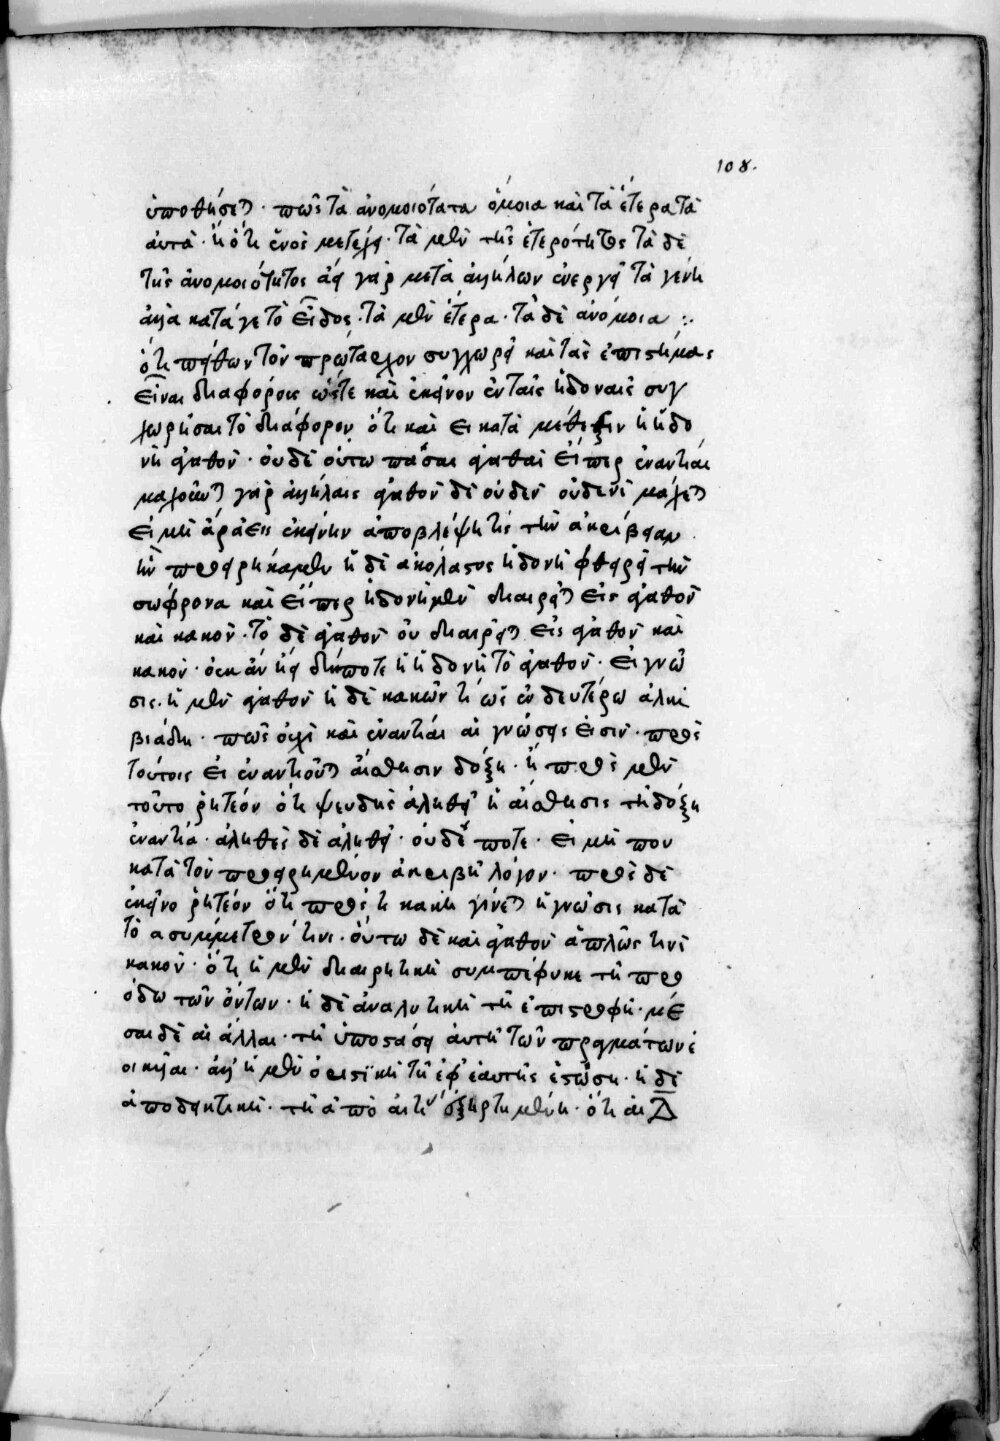 108.
ὑποθήσεται· πῶς τὰ ἀνομοιότατα ὅμοια καὶ τὰ ἕτερα τὰ
αὐτά· ἢ ὅτι ἑνὸς μετέχει· τὰ μὲν τῆς ἑτερότητος τὰ δὲ
τῆς ἀνομοιότητος ἀεὶ γὰρ μετὰ ἀλλήλων ἐνεργεῖ τὰ γένη
ἀλλὰ κατά γε τὸ εἶδος· τὰ μὲν ἕτερα· τὰ δὲ ἀνόμοια :·
ὅτι πείθων τὸν πρώταρχον συγχωρεῖ καὶ τὰς ἐπιστήμας
εἶναι διαφόρους ὥστε καὶ ἐκεῖνον ἐν ταῖς ἡδοναῖς συγ
χωρῆσαι τὸ διάφορον ὅτι καὶ εἰ κατὰ μέθεξιν ἡ ἡδο
νὴ ἀγαθόν· οὐδὲ οὕτω πᾶσαι ἀγαθαὶ εἴπερ ἐναντίαι
μαχοῦνται γὰρ ἀλλήλαις ἀγαθὸν δὲ οὐδὲν οὐδενὶ μάχεται
εἰ μὴ ἄρα εἰς ἐκείνην ἀποβλέψῃ τις τὴν ἀκρίβειαν
ἣν προειρήκαμεν ἡ δὲ ἀκόλαστος ἡδονὴ φθείρει τὴν
σώφρονα καὶ εἴπερ ἡδονὴ μὲν διαιρεῖται εἰς ἀγαθὸν
καὶ κακόν· τὸ δὲ ἀγαθὸν οὐ διαιρεῖται εἰς ἀγαθὸν καὶ
κακόν· οὐκ ἂν εἴη δήποτε ἡ ἡδονὴ τὸ ἀγαθόν· εἰ γνῶ
σις· ἡ μὲν ἀγαθὸν ἡ δὲ κακῶν τι ὡς ἐν δευτέρω ἀλκι
βιάδη· πῶς οὐχὶ καὶ ἐναντίαι αἱ γνώσεις εἰσίν· πρὸς
τούτοις εἰ ἐναντιοῦται αἴσθησιν δόξη· ἢ πρὸς μὲν
τοῦτο ῥητέον ὅτι ψευδὴς ἀληθεῖ ἡ αἴσθησις τῆ δόξη
ἐναντία· ἀληθὲς δὲ ἀληθεῖ· οὐδέποτε· εἰ μή που
κατὰ τὸν προειρημένον ἀκριβῆ λόγον· πρὸς δὲ
ἐκεῖνο ῥητέον ὅτι πρός τι κακὴ γίνεται ἡ γνῶσις κατὰ
τὸ ἀσύμμετρόν τινι· οὕτω δὲ καὶ ἀγαθὸν ἁπλῶς τινὶ
κακόν· ὅτι ἡ μὲν διαιρητικὴ συμπέφυκε τῆ προ
όδω τῶν ὄντων· ἡ δὲ ἀναλυτικὴ τῆ ἐπιστροφῆ· μέ
σαι δὲ αἱ ἄλλαι· τῆ ὑποστάσει αὐτῆ τῶν πραγμάτων ἐ
οικυῖαι· ἀλλ' ἡ μὲν ὁριστικὴ τῆ ἐφ' ἑαυτῆς ἑστώση· ἡ δὲ
ἀποδεικτικὴ· τῆ ἀπὸ αἰτίου ἐξηρτημένη· ὅτι αἱ Δ